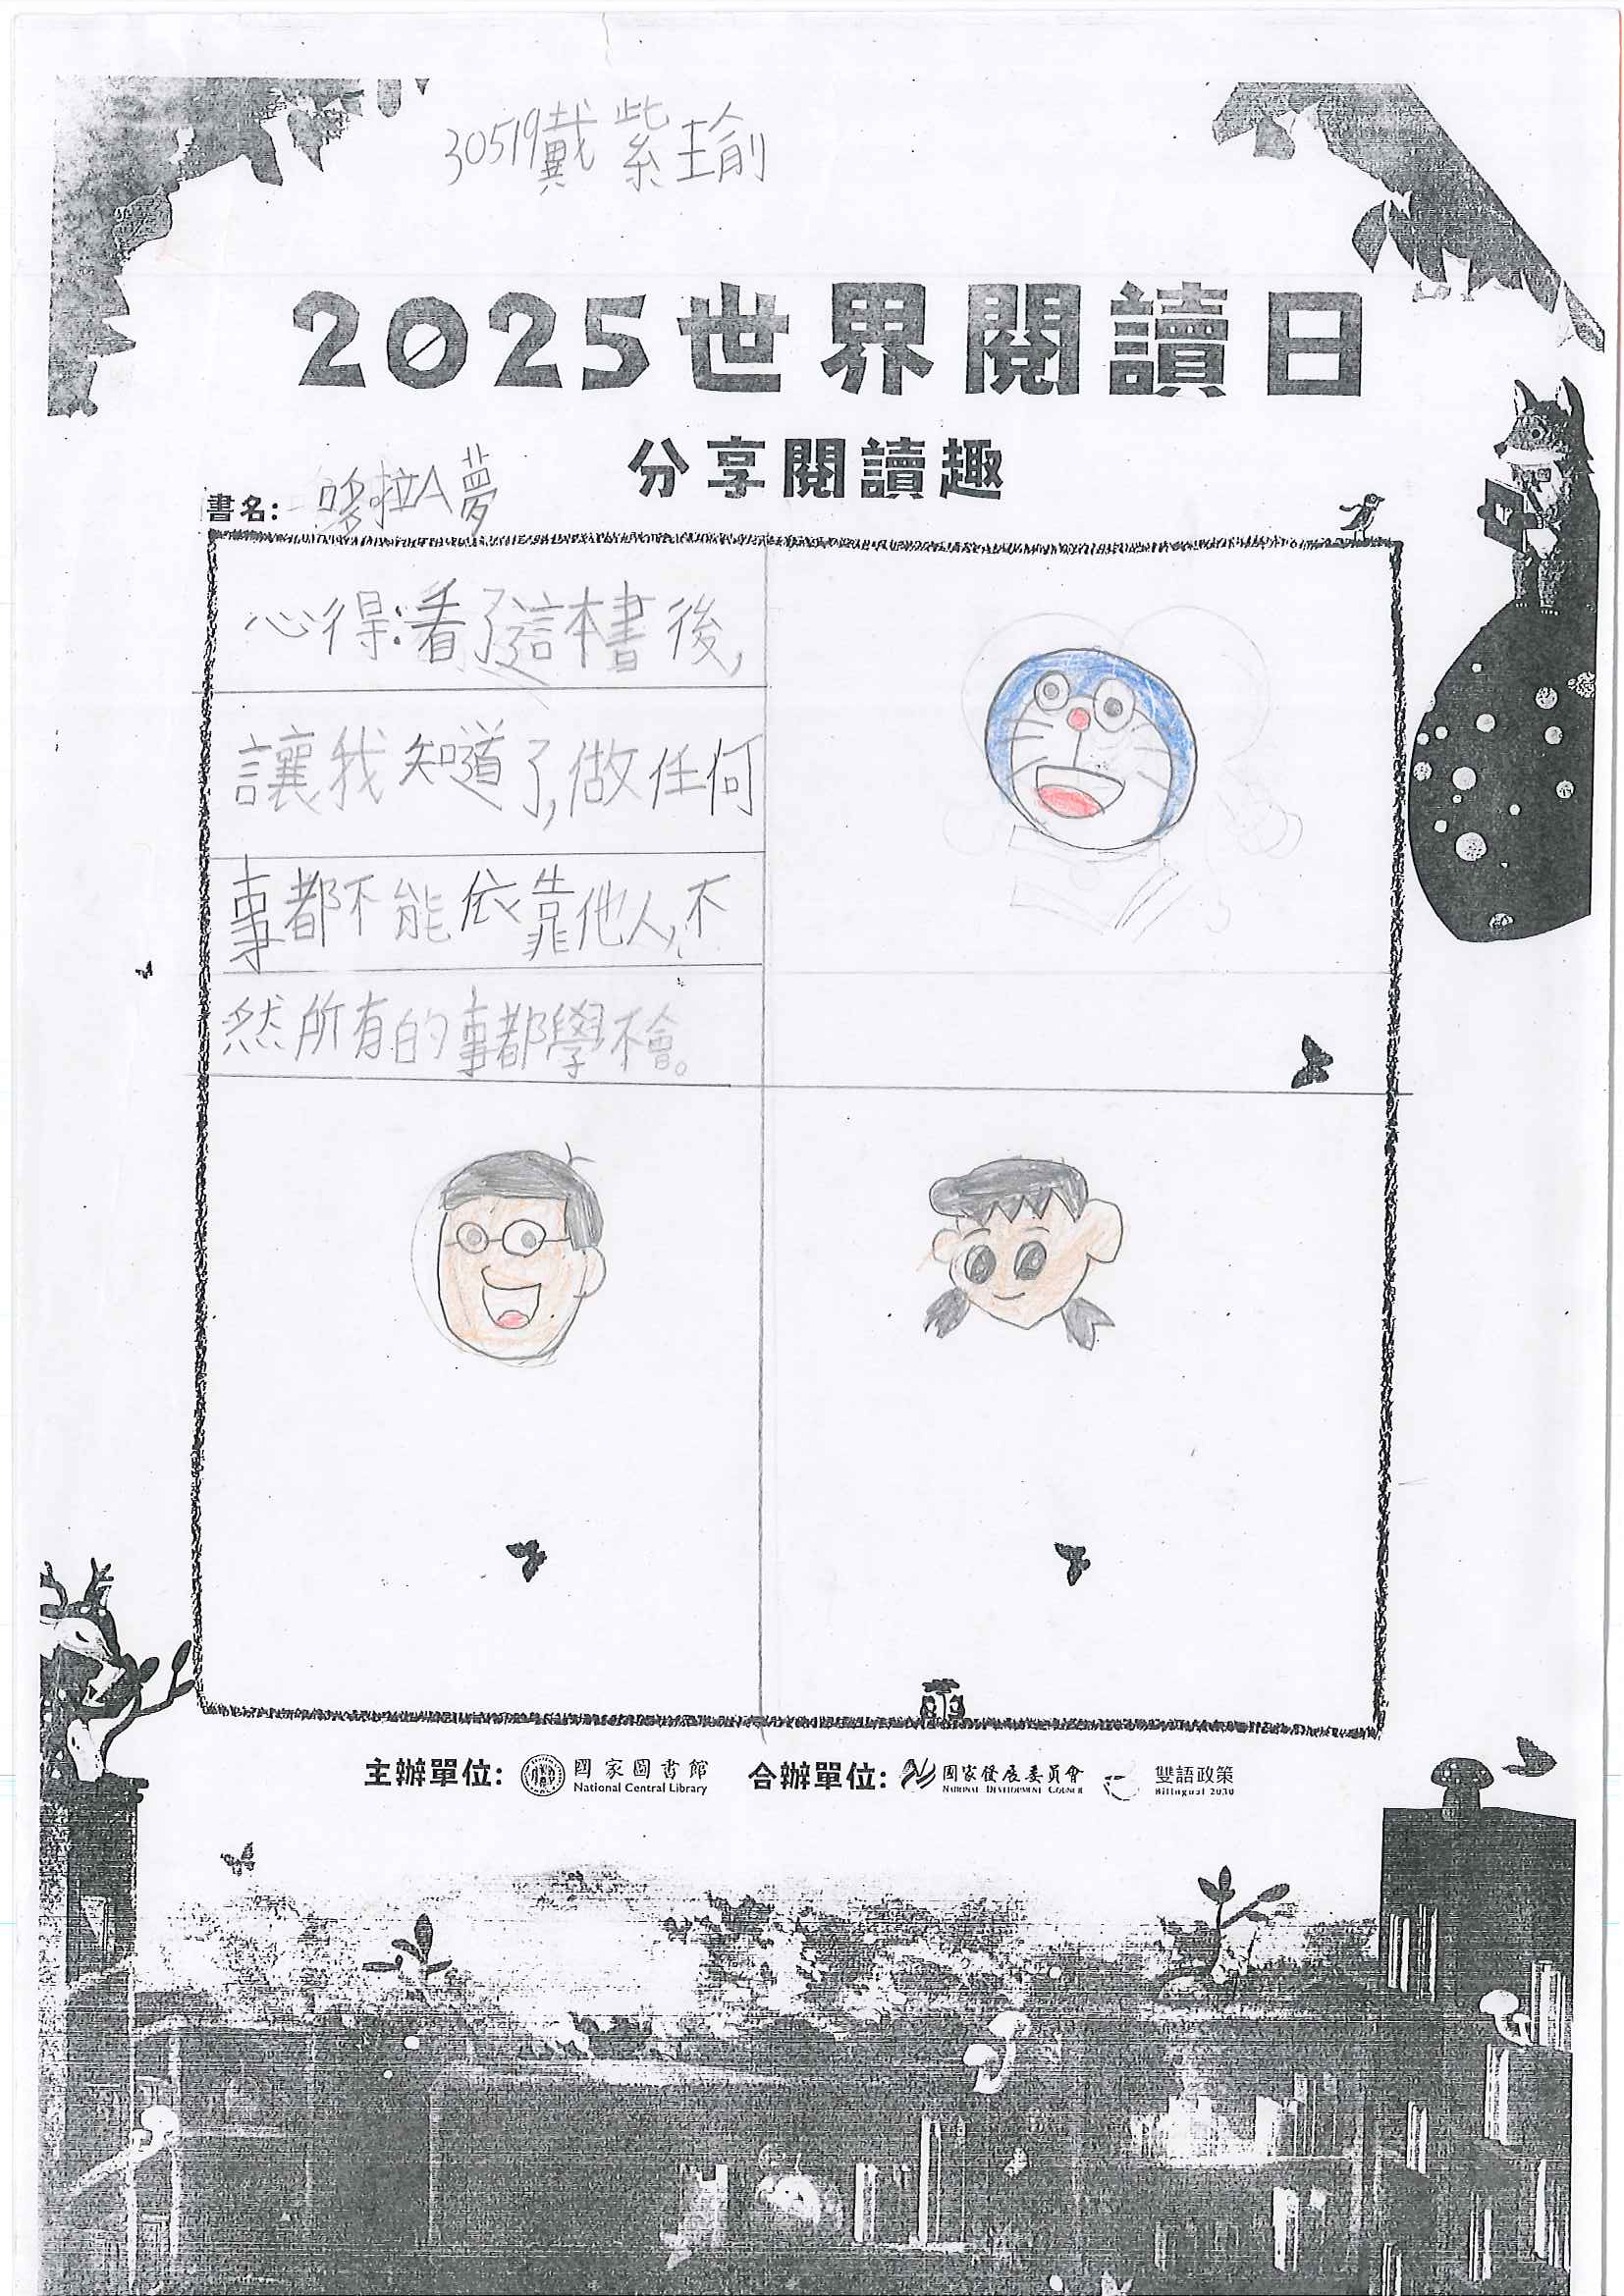 30519戴紫瑜
2025世界閱讀日
分享閱讀趣
書名: 哆啦A夢
心得:看了這本書後,
讓我知道了,做任何
事都不能依靠他人,不
然所有的事都學不會。
主辦單位: 國家圖書館 National Central Library 合辦單位: 國家發展委員會 NATIONAL DEVELOPMENT COUNCIL 雙語政策 Bilingual 2030